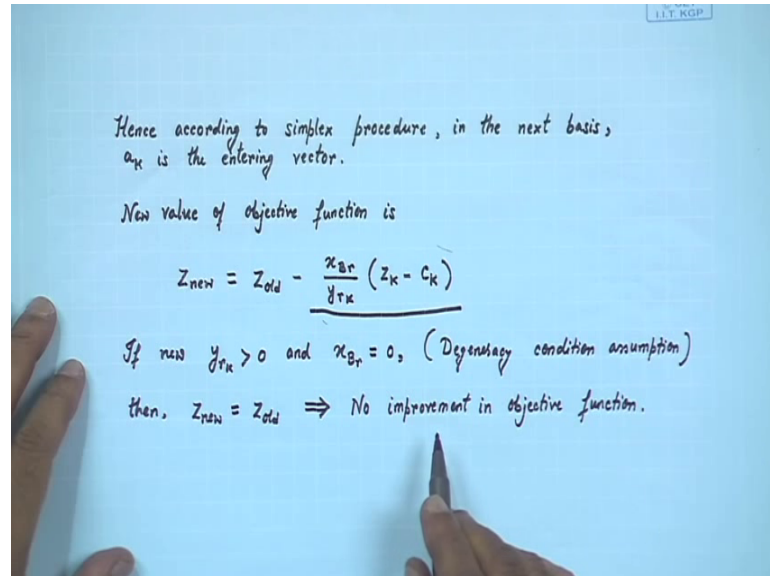 I.I.T. KGP
Hence according to simplex procedure, in the next basis,
aₖ is the entering vector.
New value of objective function is
Z_new = Z_old - x_Br / y_rk (Z_k - C_k)
If new y_rk > 0 and x_Br = 0, (Degeneracy condition assumption)
then, Z_new = Z_old ⇒ No improvement in objective function.